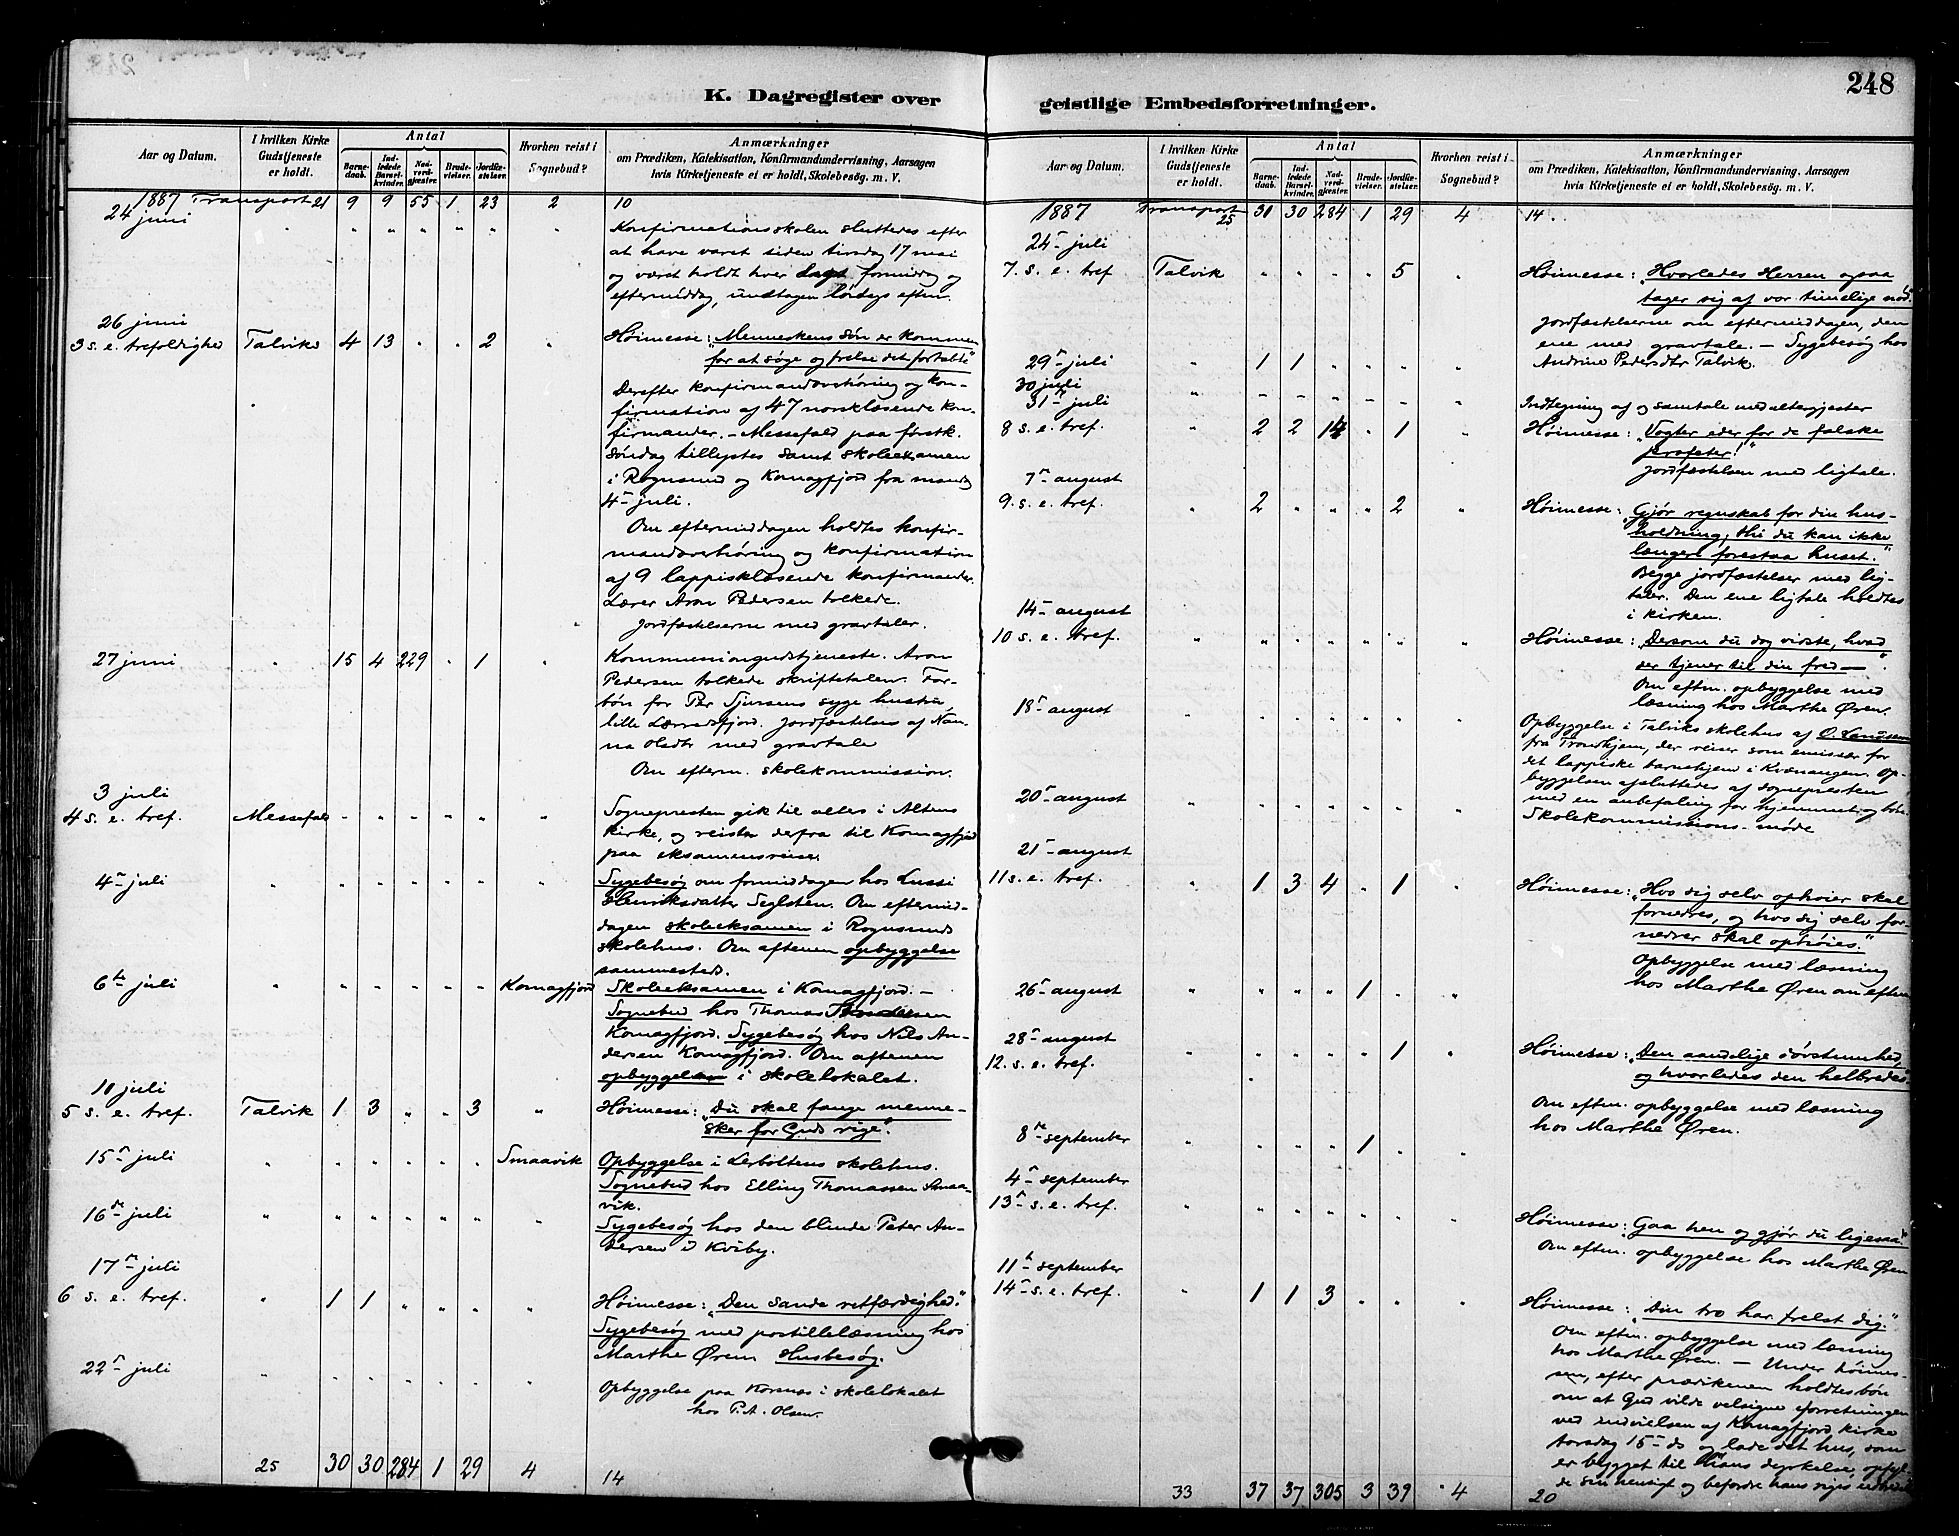 248
K. Dagregister over
Aar og Datum.
I hvilken Kirke Gudstjeneste er holdt.
Antal
Barne-daab.
Ind-ledede Barsel-kvinder.
Nad-verd-gjæster.
Brude-vielser.
Jordfæ-stelser.
Hvorhen reist i Sognebud?
Anmærkninger
om Prædiken, Katekisation, Konfirmandundervisning, Aarsagen
hvis Kirketjeneste et er holdt, Skolebesøg. m. V.
1887 Transport 21 9 9 55 1 23 2 10
24 juni " " " " " " " Konfirmationsskolen sluttedes efter
at have varet siden tirsdag 17 mai
og været holdt hver dags formiddag og
eftermiddag, undtagen lördags efterm.
26 juni
3 s. e. trefoldighed Talvik 4 13 " " 2 Høimesse: „Menneskens Søn er kommen
for at søge og frelse det fortabte"
Derefter konfirmandoverhöring og kon-
firmation af 47 norsklæsende kon-
firmander. - Messefald paa førstk.
søndag tillystes samt skoleexamen
i Rognsund og Komagfjord fra mandag
4 juli.
Om eftermiddagen holdtes konfir-
mandoverhöring og konfirmation
af 9 lappisklæsende konfirmander.
Lærer Aron Pedersen tolkede.
Jordfæstelserne med gravtaler.
27 juni " 15 4 229 " 1 " Kommuniongudstjeneste. Aron
Pedersen tolkede skriftetalen. For-
bön for Per Sjursens syge hustru,
lille Lerresfjord. Jordfæstelse af Nan-
na Olsdtr med gravtale
Om efterm. skolekommission.
3 juli
4 s. e. tref. Messefald " " " " " " Sognepresten gik til alters i Altens
kirke, og reiste derfra til Komagfjord
paa eksamensreise.
4 juli " " " " " " " Sygebesøg om formiddagen hos Lussi
Henriksdatter Seglsten. Om eftermid-
dagen skoleeksamen i Rognsunds
skolehus. Om aftenen opbyggelse
sammesteds.
6te juli " " " " " " Komagfjord Skoleeksamen i Komagfjord. -
Sognebud hos Thomas
Komagfjord. Sygebesøg hos Nils An-
dersen Komagfjord. Om aftenen
opbyggelse i skolelokalet.
10 juli
5 s. e. tref. Talvik 1 3 " " 3 " Høimesse: „Du skal fange menne-
sker for Guds rige".
15 juli " " " " " " Smaavik Opbyggelse i Lerboltens skolehus.
Sognebud hos Elling Thomassen Smaa-
vik.
16de juli " " " " " " " Sygebesøg hos den blinde Peter An-
dersen i Kviby.
17 juli
6 s. e. tref. " 1 1 " " " " Høimesse: „Den sande retfærdighed."
Sygebesøg med postillelæsning hos
Marthe Øren Husbesøg.
22 juli " " " " " " " Opbyggelse paa Korsnes i skolelokalet
hos P. A. Olsen.
25 30 30 284 1 29 4 14
248
geistlige Embedsforretninger.
Aar og Datum.
I hvilken Kirke Gudstjeneste er holdt.
Antal
Barne-daab.
Ind-ledede Barsel-kvinder.
Nad-verd-gjæster.
Brude-vielser.
Jordfæ-stelser.
Hvorhen reist i Sognebud?
Anmærkninger
om Prædiken, Katekisation, Konfirmandundervisning, Aarsagen
hvis Kirketjeneste et er holdt, Skolebesøg. m. V.
1887 Transport 25 31 30 284 1 29 4 14
24 juli
7. s. e. tref Talvik " " " " 5 " Høimesse: „Hvorledes Herren ogsaa
tager sig af vor timelige nød."
Jordfæstelserne om eftermiddagen, den
ene med gravtale. - Sygebesøg hos
Andrine Pedersdtr Talvik.
29 juli " 1 1 " " " "
30 juli " " " " " " " Indtegning af og samtale med altergjester
31 juli
8 s. e. tref. " 2 2 14 " 1 " Høimesse: „Vogter eder for de falske
profeter!"
Jordfæstelsen med ligtale.
7 august
9. s. e. tref. " 2 " " " 2 " Høimesse: „Gjør regnskab for din hus-
holdning; thi du kan ikke
længere forestaa huset."
Begge jordfæstelser med lig-
taler. Den ene ligtale holdtes
i kirken.
14 august
10 s. e. tref. " " " " " " " Høimesse: „Dersom du dog vidste, hvad
der tjener til din fred -".
Om eftm. opbyggelse med
læsning hos Marthe Øren.
18 august " " " " " " " Opbyggelse i Talviks skolehus af O. Landsem
fra Trondhjem, der reiser som emissær for
det lappiske barnehjem i Kvænangen. Op-
byggelsen afsluttedes af sognepresten
med en anbefaling for hjemmet og bön.
20 august " " " " " " " Skolekommissions-møde
21 august
11 s. e. tref. " 1 3 4 " 1 " Høimesse: „Hvo sig selv ophøier skal
fornedres, og hvo sig selv for-
nedrer skal ophøies."
Opbyggelse med læsning
hos Marthe Øren om eftm
26 august " " " " 1 " "
28 august
12. s. e. tref. " " " " " 1 " Høimesse: „Den aandelige dövstumhed,
og hvorledes den helbredes"
Om eftm. opbyggelse med læsning
hos Marthe Øren.
8 september " " " " 1 " "
4 september
13 s. e. tref. " " " " " " " Høimesse: „Gaa hen og gjør du ligesaa."
Om eftm. opbyggelse hos Marthe Øren
11 september
14 s. e. tref. " 1 1 3 " " " Høimesse: „Din tro har frelst dig."
Om eftm. opbyggelse med læsning
hos Marthe Øren. - Under höimes-
sen, efter prædikenen holdtes bön
om at Gud vilde velsigne forretningen
ved indvielsen af Komagfjord kirke
torsdag 15 ds og lade det hus, som
er bygget til Hans dyrkelse, opfyl-
de sin hensigt og befordre hans riges
33 37 37 305 3 39 4 20